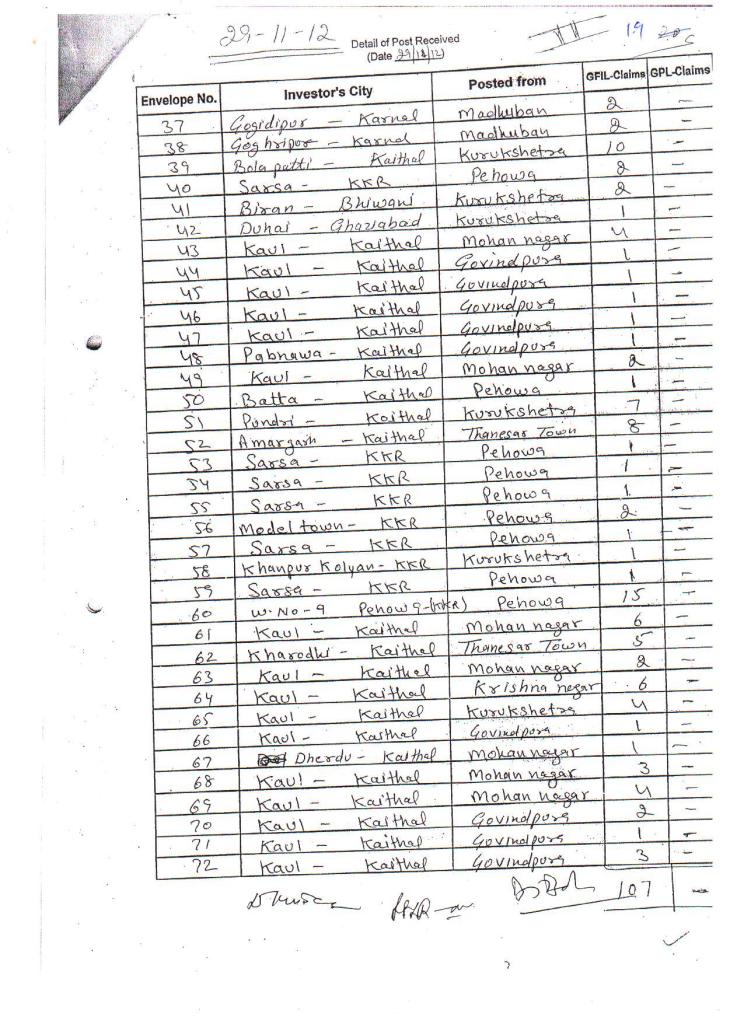 29-11-12
Detail of Post Received
(Date 29/11/12)
19
Envelope No. Investor's City Posted from GFIL-Claims GPL-Claims
37 Gogidipur - Karnal Madhuban 2 -
38 Goghripur - Karnal Madhuban 2 -
39 Bola patti - Kaithal Kurukshetra 10 -
40 Sarsa - KKR Pehowa 2 -
41 Biran - Bhiwani Kurukshetra 2 -
42 Duhai - Ghaziabad Kurukshetra 1 -
43 Kaul - Kaithal Mohan nagar 4 -
44 Kaul - Kaithal Govindpura 1 -
45 Kaul - Kaithal Govindpura 1 -
46 Kaul - Kaithal Govindpura 1 -
47 Kaul - Kaithal Govindpura 1 -
48 Pabnawa - Kaithal Govindpura 1 -
49 Kaul - Kaithal Mohan nagar 2 -
50 Batta - Kaithal Pehowa 1 -
51 Pundri - Kaithal Kurukshetra 7 -
52 Amargarh - Kaithal Thanesar Town 8 -
53 Sarsa - KKR Pehowa 1 -
54 Sarsa - KKR Pehowa 1 -
55 Sarsa - KKR Pehowa 1 -
56 Model town - KKR Pehowa 2 -
57 Sarsa - KKR Pehowa 1 -
58 Khanpur Kolyan - KKR Kurukshetra 1 -
59 Sarsa - KKR Pehowa 1 -
60 W. No - 9 Pehowa - (KKR) Pehowa 15 -
61 Kaul - Kaithal Mohan nagar 6 -
62 Kharodhi - Kaithal Thanesar Town 5 -
63 Kaul - Kaithal Mohan nagar 2 -
64 Kaul - Kaithal Krishna nagar 6 -
65 Kaul - Kaithal Kurukshetra 4 -
66 Kaul - Kaithal Govindpura 1 -
67 Dherdu - Kaithal Mohan nagar 1 -
68 Kaul - Kaithal Mohan nagar 3 -
69 Kaul - Kaithal Mohan nagar 4 -
70 Kaul - Kaithal Govindpura 2 -
71 Kaul - Kaithal Govindpura 1 -
72 Kaul - Kaithal Govindpura 3 -
107 -